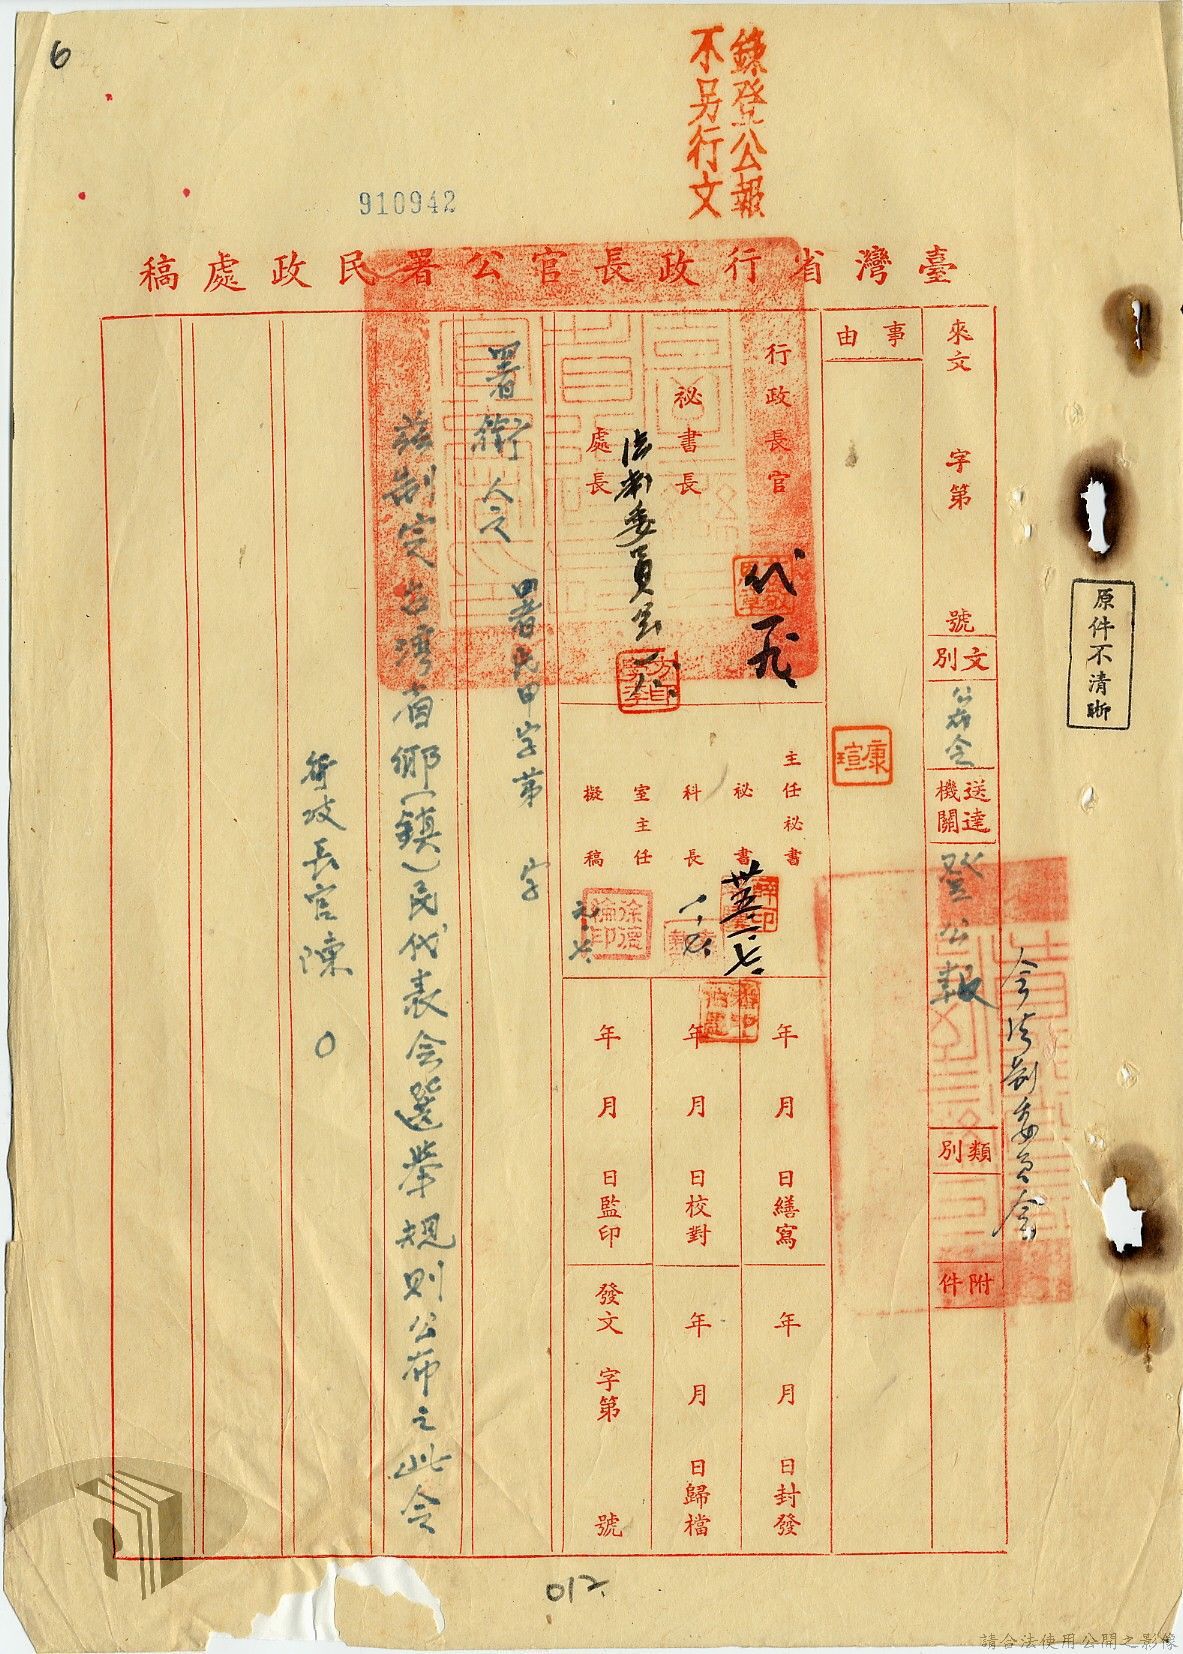 6
錄登公報
不另行文
910942
臺灣省行政長官公署民政處稿
原件不清晰
令法制委員會
來文 字第 號
文別
公布令
送達機關
登公報
類別
附件
事由
康瑄
行政長官
代
秘書長
法制委員會
處長
主任秘書
秘書
卅五、一、七、
科長
室主任
擬稿
徐德
印
年 月 日繕寫
年 月 日校對
年 月 日監印
年 月 日封發
年 月 日歸檔
發文 字第 號
署銜令 署民甲字第 字
茲制定台灣省鄉(鎮)民代表会選举規则公布之此令
行政長官陳〇
012
請合法使用公開之影像